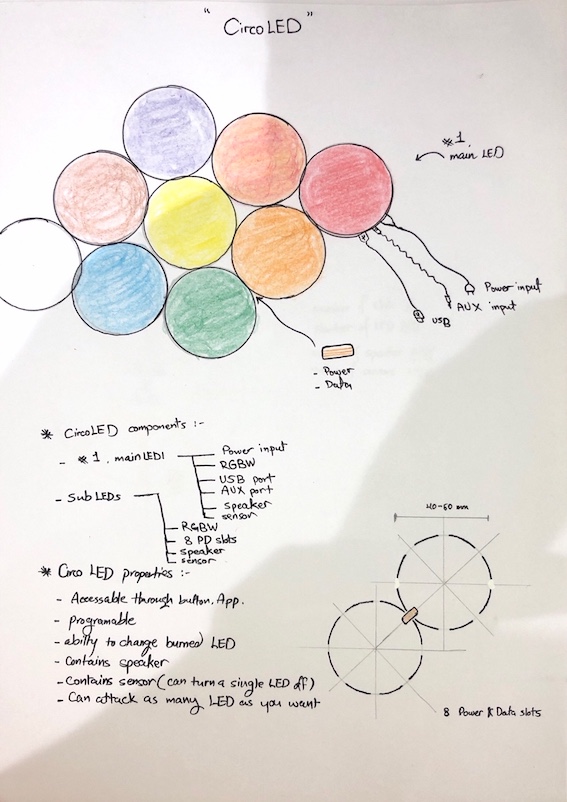 "CircoLED"
*1.
main LED
Power input
AUX input
USB
- Power
- Data
* CircoLED components :-
- *1. main LED1
Power input
RGBW
USB port
AUX port
speaker
sensor
- Sub LEDs
RGBW
8 PD slots
speaker
sensor
* Circo LED properties :-
- Accessable through button, App.
- programable
- abilty to change burned LED
- Contains speaker
- Contains sensor (can turn a single LED off)
- Can attack as many LED as you want
40-60 mm
8 Power & Data slots